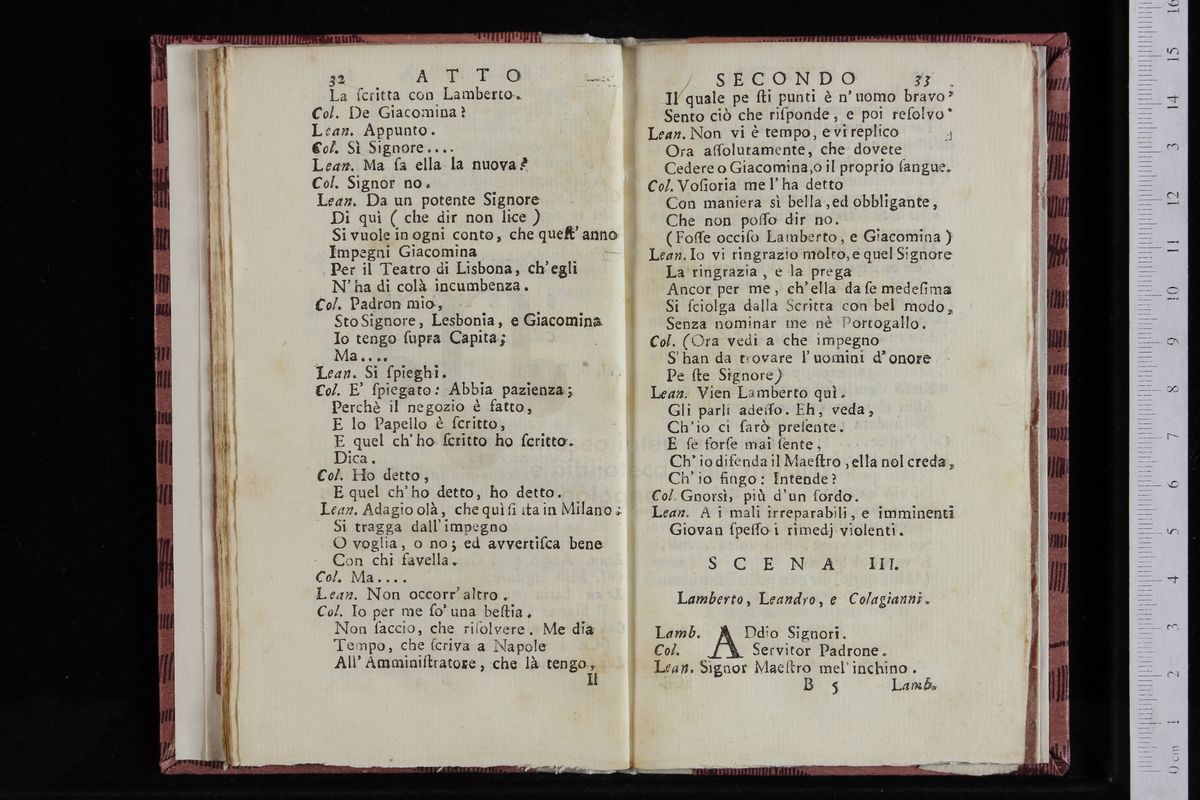 32 ATTO
La ſcritta con Lamberto.
Col. De Giacomina?
Lean. Appunto.
Col. Sì Signore....
Lean. Ma ſa ella la nuova?
Col. Signor no.
Lean. Da un potente Signore
Di quì ( che dir non lice )
Si vuole in ogni conto, che queſt' anno
Impegni Giacomina
Per il Teatro di Lisbona, ch'egli
N' ha di colà incumbenza.
Col. Padron mio,
Sto Signore, Lesbonia, e Giacomina
Io tengo ſupra Capita;
Ma....
Lean. Si ſpieghi.
Col. E' ſpiegato: Abbia pazienza;
Perchè il negozio è fatto,
E lo Papello è ſcritto,
E quel ch' ho ſcritto ho ſcritto.
Dica.
Col. Ho detto,
E quel ch' ho detto, ho detto.
Lean. Adagio olà, che quì ſi sta in Milano:
Si tragga dall' impegno
O voglia, o no; ed avvertiſca bene
Con chi favella.
Col. Ma....
Lean. Non occorr' altro.
Col. Io per me ſo' una beſtia.
Non ſaccio, che riſolvere. Me dia
Tempo, che ſcriva a Napole
All' Amminiſtratore, che là tengo,
Il
SECONDO 33
Il quale pe ſti punti è n' uomo bravo
Sento ciò che riſponde, e poi reſolvo
Lean. Non vi è tempo, e vi replico
Ora aſſolutamente, che dovete
Cedere o Giacomina, o il proprio ſangue.
Col. Voſioria me l' ha detto
Con maniera sì bella, ed obbligante,
Che non poſſo dir no.
(Foſſe occiſo Lamberto, e Giacomina)
Lean. Io vi ringrazio molto, e quel Signore
La ringrazia, e la prega
Ancor per me, ch' ella da ſe medeſima
Si ſciolga dalla Scritta con bel modo,
Senza nominar me nè Portogallo.
Col. (Ora vedi a che impegno
S' han da trovare l' uomini d' onore
Pe ſte Signore)
Lean. Vien Lamberto quì.
Gli parli adeſſo. Eh, veda,
Ch' io ci ſarò preſente.
E ſe forſe mai ſente,
Ch' io difenda il Maeſtro, ella nol creda,
Ch' io fingo: Intende?
Col. Gnorsì, più d' un ſordo.
Lean. A i mali irreparabili, e imminenti
Giovan ſpeſſo i rimedj violenti.
SCENA III.
Lamberto, Leandro, e Colagianni.
Lamb. ADdio Signori.
Col. Servitor Padrone.
Lean. Signor Maeſtro mel' inchino.
B 5 Lamb.